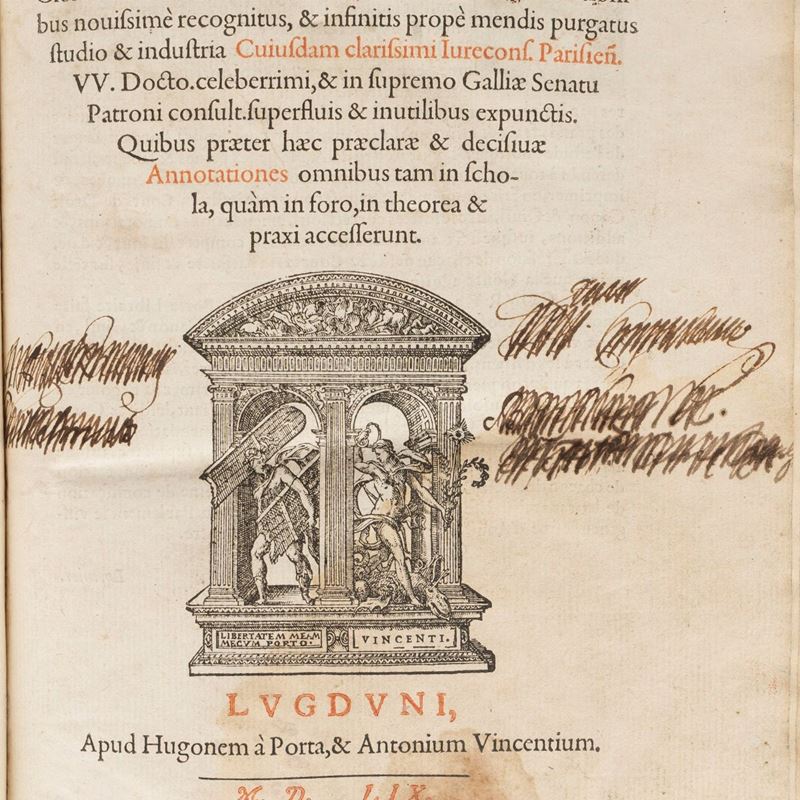 bus nouissimè recognitus, & infinitis propè mendis purgatus
studio & industria Cuiusdam clarissimi Iurecons. Parisień.
VV. Docto.celeberrimi,& in supremo Galliæ Senatu
Patroni consult.superfluis & inutilibus expunctis.
Quibus præter hæc præclaræ & decisiuæ
Annotationes omnibus tam in scho-
la, quàm in foro,in theorea &
praxi accesserunt.
LIBERTATEM MEAM
MECVM PORTO.
VINCENTI.
LVGDVNI,
Apud Hugonem à Porta,& Antonium Vincentium.